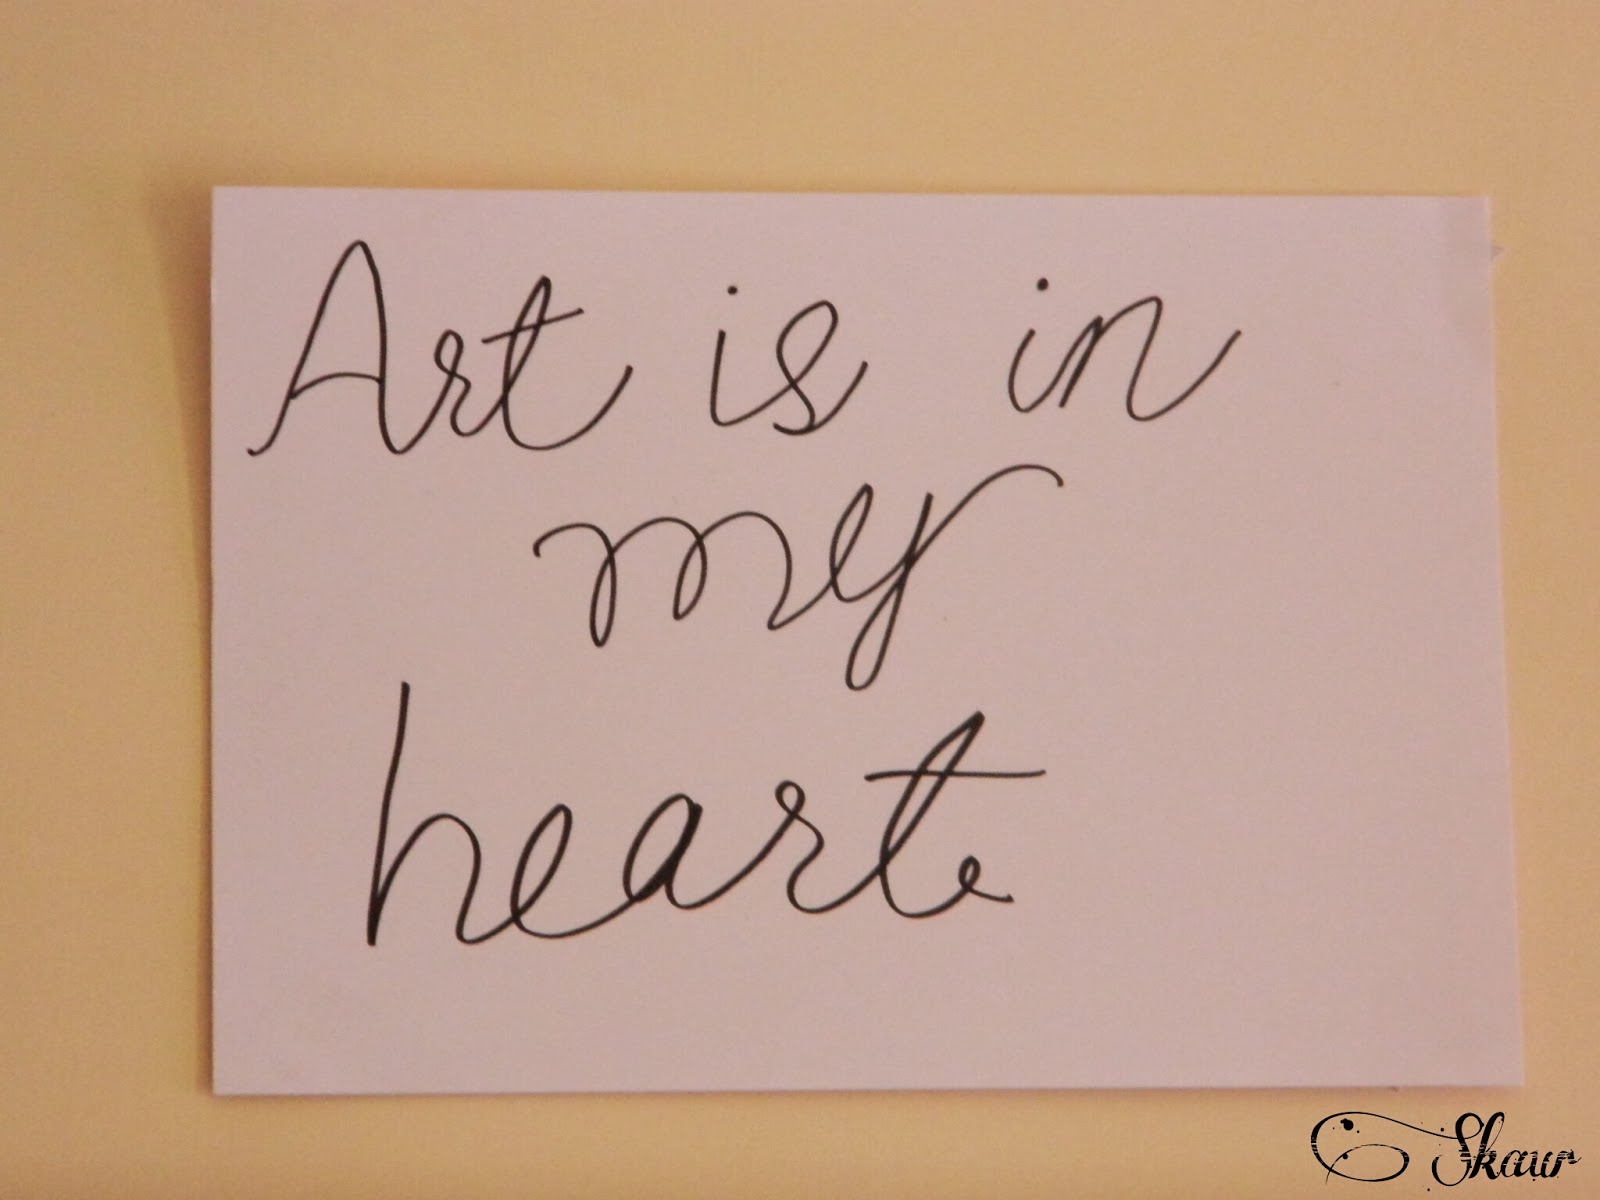 Art is in
my
heart.
Skaur